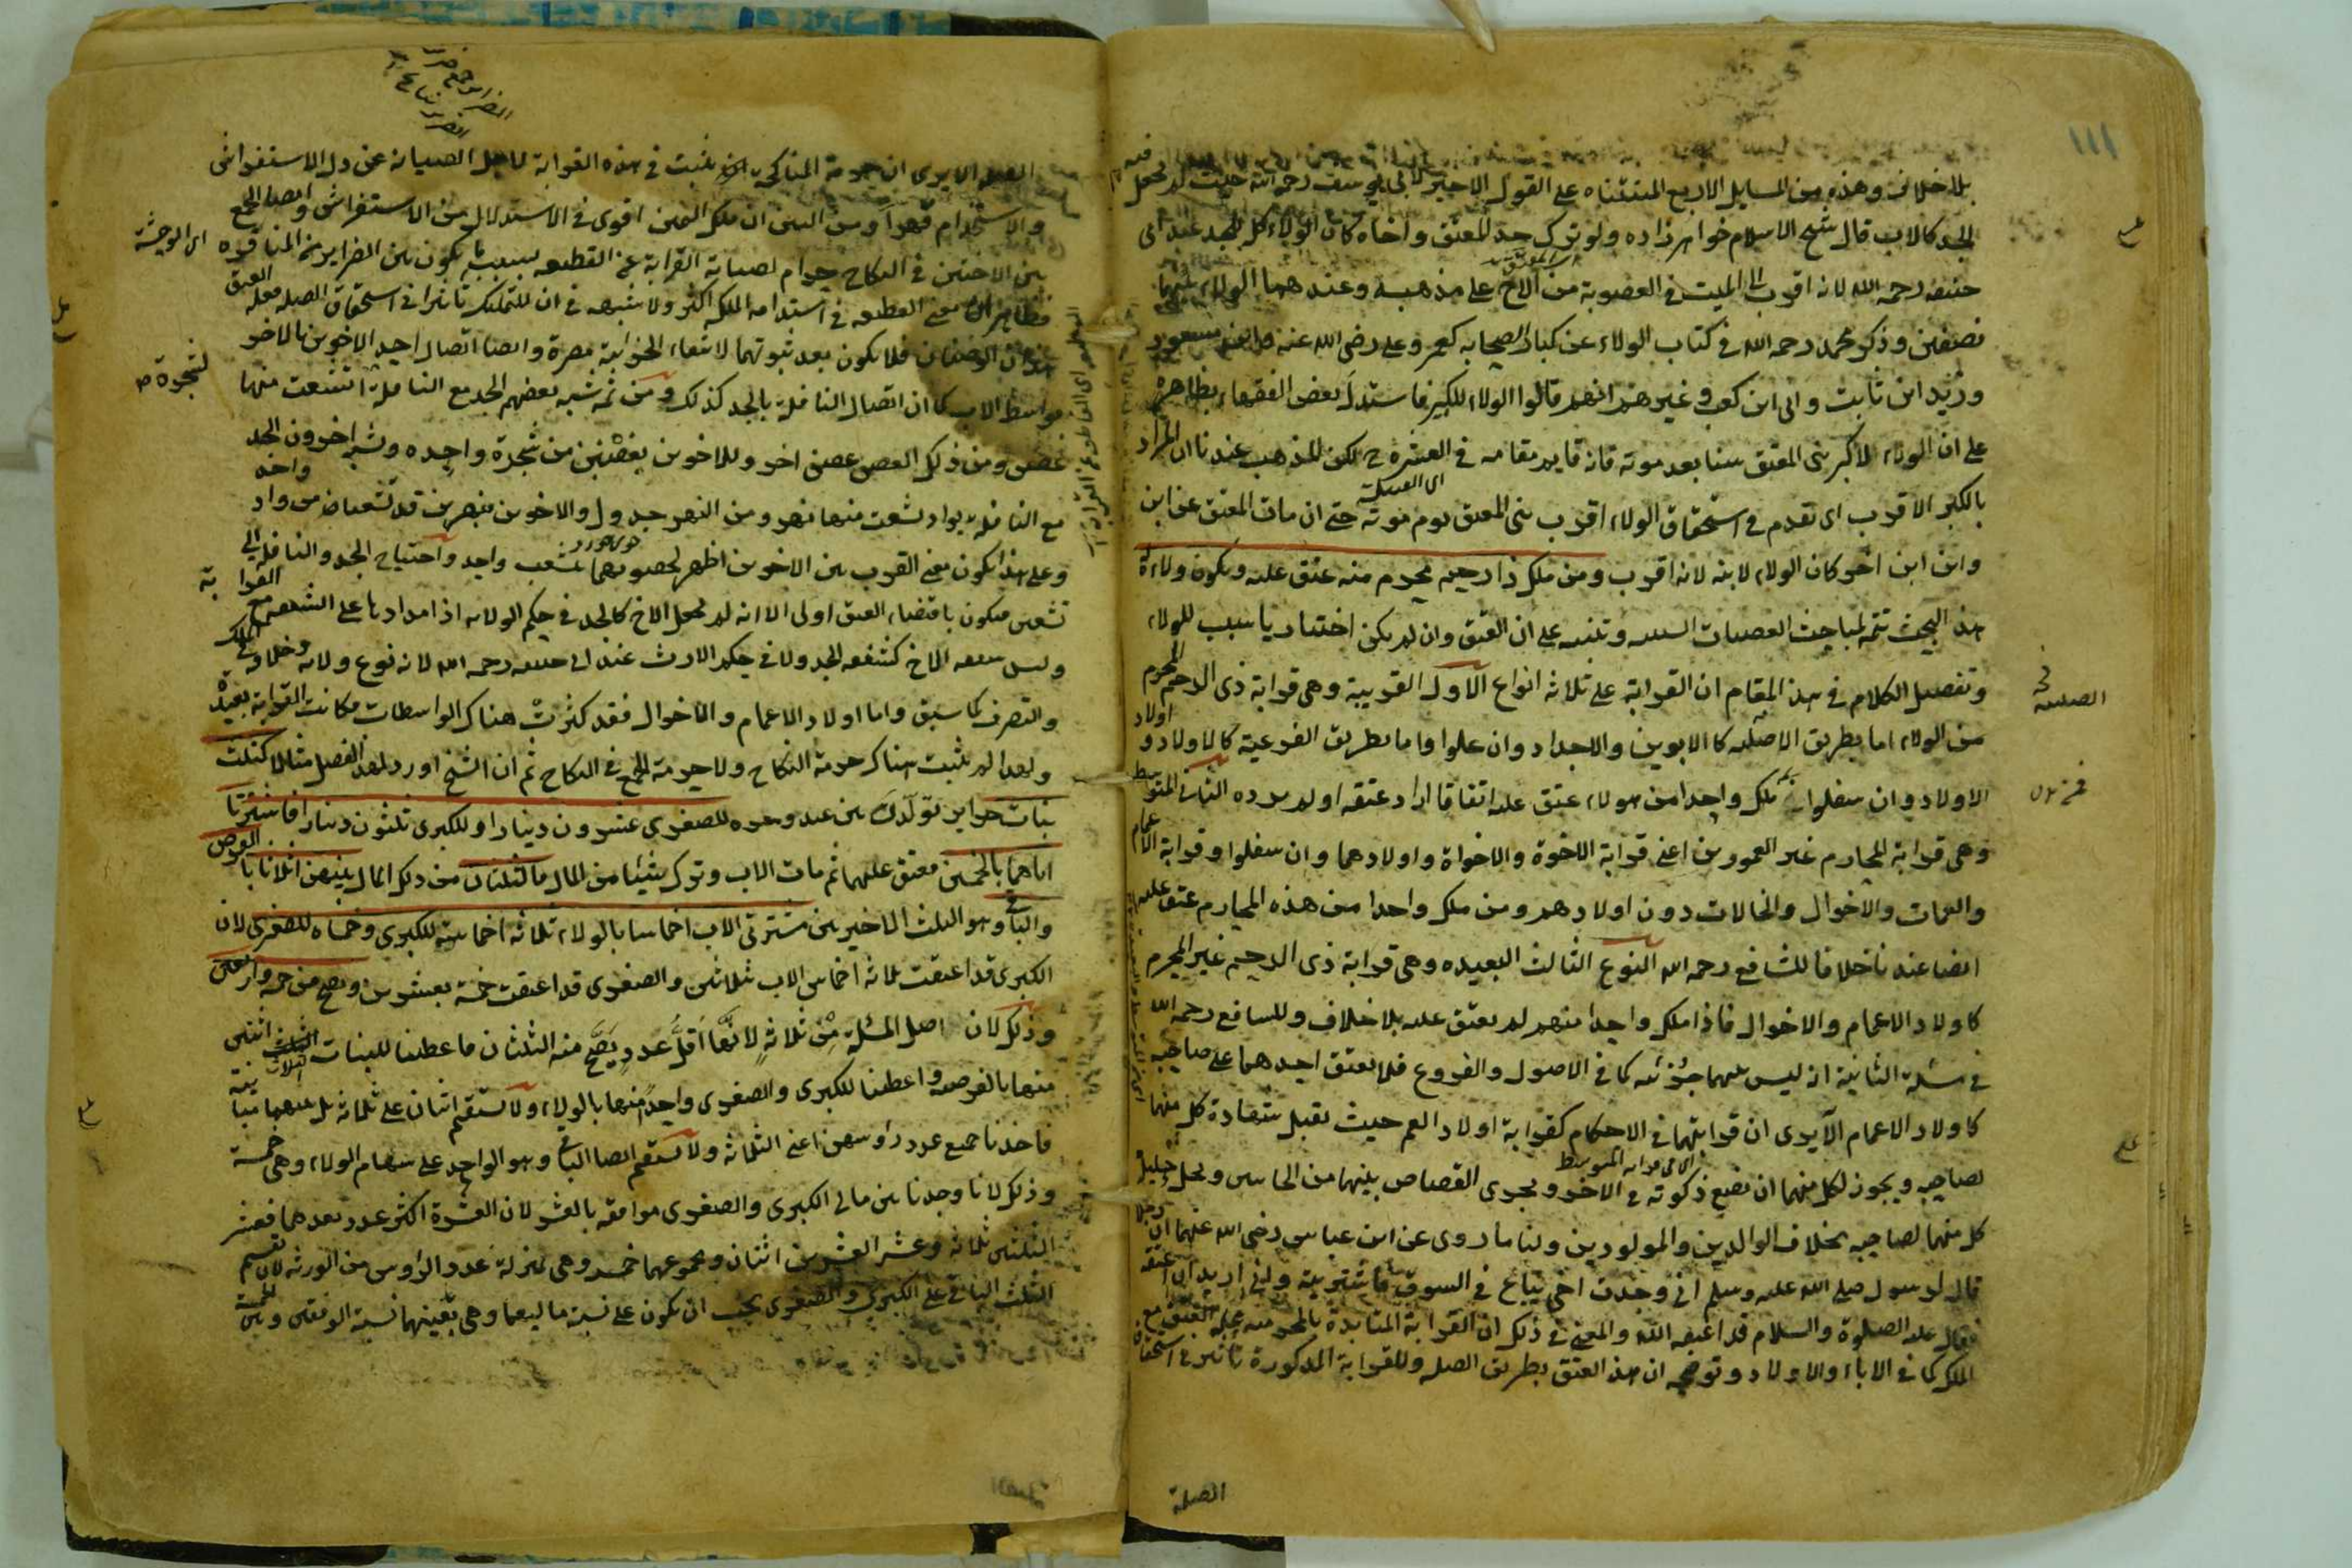 ١١١
بلا خلاف وهذه من المسايل الاربع المستثناة على القول الاخير لابي يوسف رحمه الله حيث لم يجعل
الجد كالاب قال شيخ الاسلام خواهرزاده ولو ترك جد المعتق واخاه كان الولاء كله للجد عند ابى
حنيفه رحمه الله لانه اقرب الى الميت فى العصوبة من الاخ على مذهبه وعندهما الولاء بينهما
نصفين وذكر محمد رحمه الله فى كتاب الولاء عن كبار الصحابه كعمر وعلى رضى الله عنه وابن مسعود
وزيد ابن ثابت وابى ابن كعب وغيرهم انهم قالوا الولاء للكبر فاستدل بعض الفقهاء بظاهره
على ان الولاء لاكبر بنى المعتق سنا بعد موته فانه قايم مقامه فى العشيرة لكن المذهب عندنا ان المراد
بالكبر الاقرب اى تقدم فى استحقاق الولاء اقرب بنى المعتق يوم موته حتى ان مات المعتق عن ابن
وابن ابن اخر كان الولاء لابنه لانه اقرب ومن ملك ذا رحم محرم منه عتق عليه ويكون ولاءه له
هذا البحث تتمة لمباحث العصبات السببيه وتنبيه على ان العتق وان لم يكن اختياريا سبب للولاء
وتفصيل الكلام فى هذا المقام ان القرابة على ثلاثه انواع الاول القريبة وهى قرابة ذى الرحم المحرم
من الولاد اما بطريق الاصليه كالابوين والاجداد وان علوا واما بطريق الفرعية كالاولاد واولاد
الاولاد وان سفلوا فمن ملك واحدا من هولاء عتق عليه اتفاقا اراد عتقه او لم يرده الثانى المتوسطه
وهى قرابة المحارم غير العمودين اعنى قرابة الاخوة والاخواة واولادهما وان سفلوا وقرابة الاعمام
والعمات والاخوال والخالات دون اولادهم ومن ملك واحدا من هذه المحارم عتق عليه
ايضا عندنا خلافا للشافعى رحمه الله النوع الثالث البعيده وهى قرابة ذى الرحم غير المحرم
كاولاد الاعمام والاخوال فاذا ملك واحدا منهم لم يعتق عليه بلا خلاف وللشافعى رحمه الله
فى مسئلة الثانية انه ليس بينهما جزئيه كما فى الاصول والفروع فلا يعتق احدهما على صاحبه
كاولاد الاعمام الا يرى ان قرابتهما فى الاحكام كقرابة اولاد العم حيث يقبل شهادة كل منهما
لصاحبه ويجوز لكل منهما ان يضع زكوته فى الاخر ويجرى القصاص بينهما من الجانبين ويحل حليلة
كل منهما لصاحبه بخلاف الوالدين والمولودين ولنا ما روى عن ابن عباس رضى الله عنهما ان رجلا
قال لرسول صلى الله عليه وسلم انى وجدت اخى يباع فى السوق فاشتريته وانى اريد ان اعتقه
فقال عليه الصلوة والسلام قد اعتقه الله والمعنى فى ذلك ان القرابة المتابدة بالمحرميه علة العتق مع
الملك كما فى الاباء والاولاد وتوضيحه ان هذا العتق بطريق الصله وللقرابة المذكورة تاثير فى استحقاق
الصلة
الصله الا يرى ان حرمة المناكحه تثبت فى هذه القرابة لاجل الصيانه عن ذل الاستفراش
والاستخدام قهرا ومن البين ان ملك اليمين اقوى فى الاستذلال من الاستفراش وايضا الجمع
بين الاختين فى النكاح حرام لصيانة القرابة عن القطيعه بسبب ما يكون بين الضراير من المنافره
فظاهر ان معنى القطيعه فى استدامه الملك اكثر ولا شبهه فى ان للتمليك تاثيرا فى استحقاق الصله فعله العتق
هذان الوصفان فلا يكون بعد ثبوتهما لانتفاء الجزايية مضرة وايضا اتصال احد الاخوين بالاخر
بواسطة الاب كما ان اتصال النافلة بالجد كذلك ومن ثمه شبه بعضهم الجد مع النافلة بشجرة انشعب منها
غصن ومن ذلك الغصن غصن اخر وللاخوين بغصنين من شجرة واحده وشبه اخرون الجد
مع النافلة بواد تشعب منها نهر ومن النهر جدول والاخوين بنهرين قد تشعبا من واد واحد
وعلى هذا يكون معنى القرب بين الاخوين اظهر لحصولهما بتشعب واحد واحتياج الجد والنافلة الى
تشعبين فيكون باقتضاء العتق اولى الا انه لم يجعل الاخ كالجد فى حكم الولاية اذ امدادها على الشفقه مع القرابة
وليس شفقة الاخ كشفقه الجد ولا فى حكم الارث عند ابى حنيفه رحمه الله لانه نوع ولاية وخلافة فى الملك
والتصرف كما سبق واما اولاد الاعمام والاخوال فقد كثرت هناك الواسطات فكانت القرابة بعيدة
ولهذا لم يثبت هناك حرمة النكاح ولا حرمة الجمع فى النكاح ثم ان الشيخ اورد لهذا الفصل مثالا كثلث
بنات حراير تولدن بين عبد وحره للصغرى عشرون دينارا وللكبرى ثلثون دينارا فاشترتا
اباهما بالخمسين فعتق عليهما ثم مات الاب وترك شيئا من المال فالثلثان من ذلك المال بينهن اثلاثا بالفرض
والباقى وهو الثلث الاخير بين مشترتى الاب اخماسا بالولاء ثلاثه اخماسه للكبرى وخمساه للصغرى لان
الكبرى قد اعتقت ثلاثه اخماس الاب بثلاثين والصغرى قد اعتقت خمسه بعشرين وتصح من خمسه واربعين
وذلك لان اصل المسئلة من ثلاثه لانها اقل عدد يصح منه الثلثان فاعطينا للبنات الثلاث اثنين
منها بالفرضيه واعطينا للكبرى والصغرى واحدا منها بالولاء ولا يستقيم اثنان على ثلاثه بل بينهما مباينة
فاخذنا جميع عدد رؤسهن اعنى الثلاثه ولا يستقيم ايضا الباقى وهو الواحد على سهام الولاء وهى خمسة
وذلك لانا وجدنا بين مالى الكبرى والصغرى موافقه بالعشر لان العشرة اكثر عدد يعدهما فعشر
الثلثين ثلاثه وعشر العشرين اثنان ومجموعهما خمسه وهى بمنزلة عدد الرؤس من الورثه لان تقسيم
الثلث الباقى على الكبرى والصغرى يجب ان يكون على نسبة ماليهما وهى بعينها نسبة الوفقين وبين الخمسة